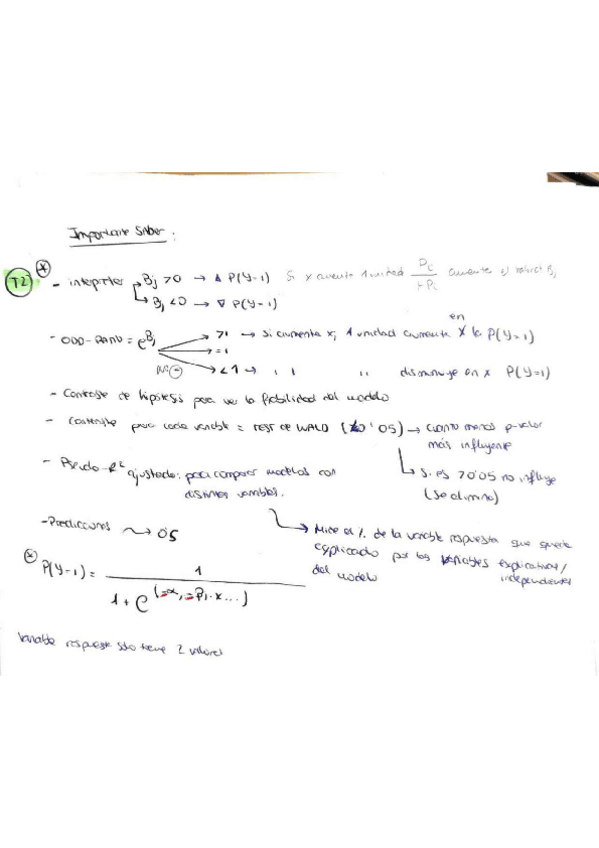 Importante Saber:
T2
- interpretar βj >0 → ▲ P(Y=1) Si x aumenta 1 unidad Pi / 1-Pi aumenta el
βj <0 → ▼ P(Y=1)
- ODD-RATIO = e^βj → >1 → si aumenta xj 1 unidad aumenta en X la P(Y=1)
→ =1
→ <1 → " " " disminuye en x P(Y=1)
- Contraste de hipótesis para ver la fiabilidad del modelo
- Contraste para cada variable = TEST DE WALD → cuanto menos p-valor
más influyente
si es >0'05 no influye
(se elimina)
- Pseudo-R² ajustado: para comparar modelos con
distintas variables.
→ Mide el % de la variable respuesta que queda
explicado por las variables explicativas/
independientes
del modelo
- Predicciones → 0'5
* P(Y=1) = 1 / 1 + e^(-α, -β1·x...)
Variable respuesta sólo tiene 2 valores